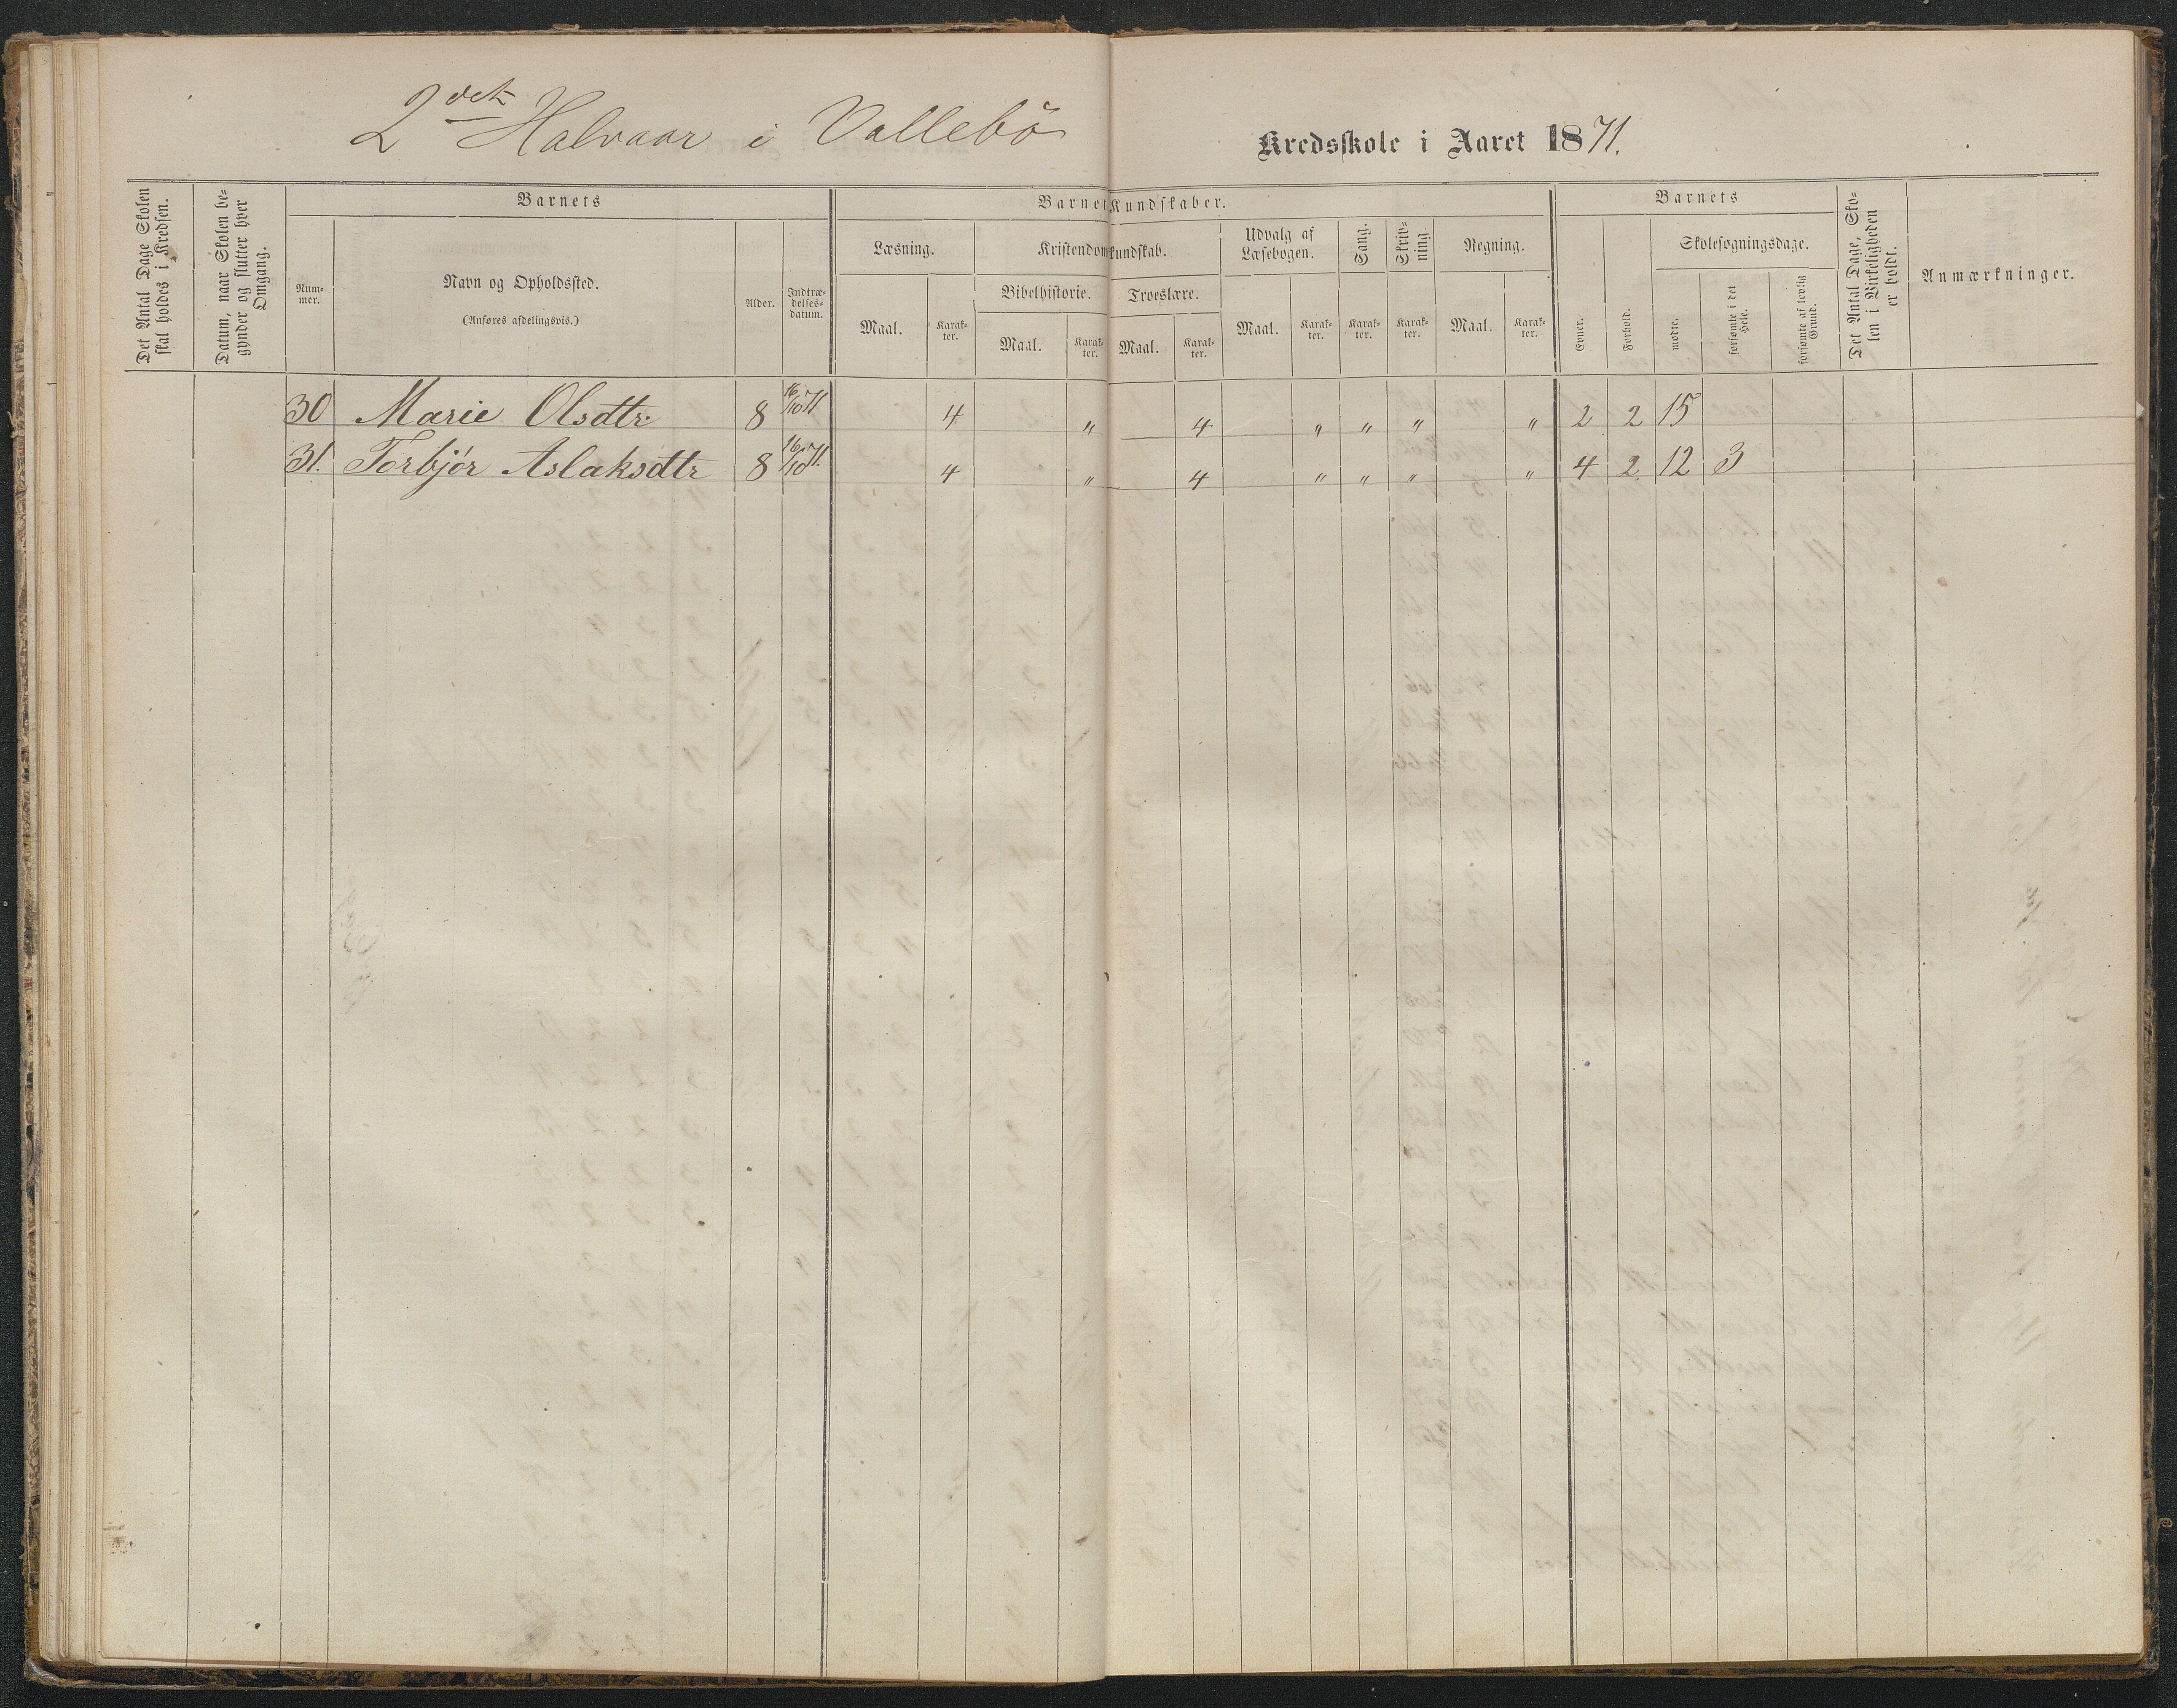 2det Halvaar i Vallebö Kredsskole i Aaret 1871.
Det Antal Dage Skolen skal holdes i Kredsen.
Datum, naar Skolen begynder og slutter hver Omgang.
Barnets
Nummer.
Navn og Opholdssted.
(Anføres afdelingsvis.)
Alder.
Indtrædelsesdatum.
Barnets Kundskaber.
Læsning.
Maal.
Karakter.
Kristendomskundskab.
Bibelhistorie.
Maal.
Karakter.
Troeslære.
Maal.
Karakter.
Udvalg af Læsebogen.
Maal.
Karakter.
Sang.
Karakter.
Skrivning.
Karakter.
Regning.
Maal.
Karakter.
Barnets
Evner.
Forhold.
Skolesøgningsdage.
mødte.
forsømte i det Hele.
forsømte af lovlig Grund.
Det Antal Dage, Skolen i Virkeligheden er holdt.
Anmærkninger.
30 Marie Olsdtr. 8 16/10 71 4 " 4 " " " " 2 2 15
31. Torbjør Aslaksdtr 8 16/10 71. 4 " 4 " " " " 4 2 12 3